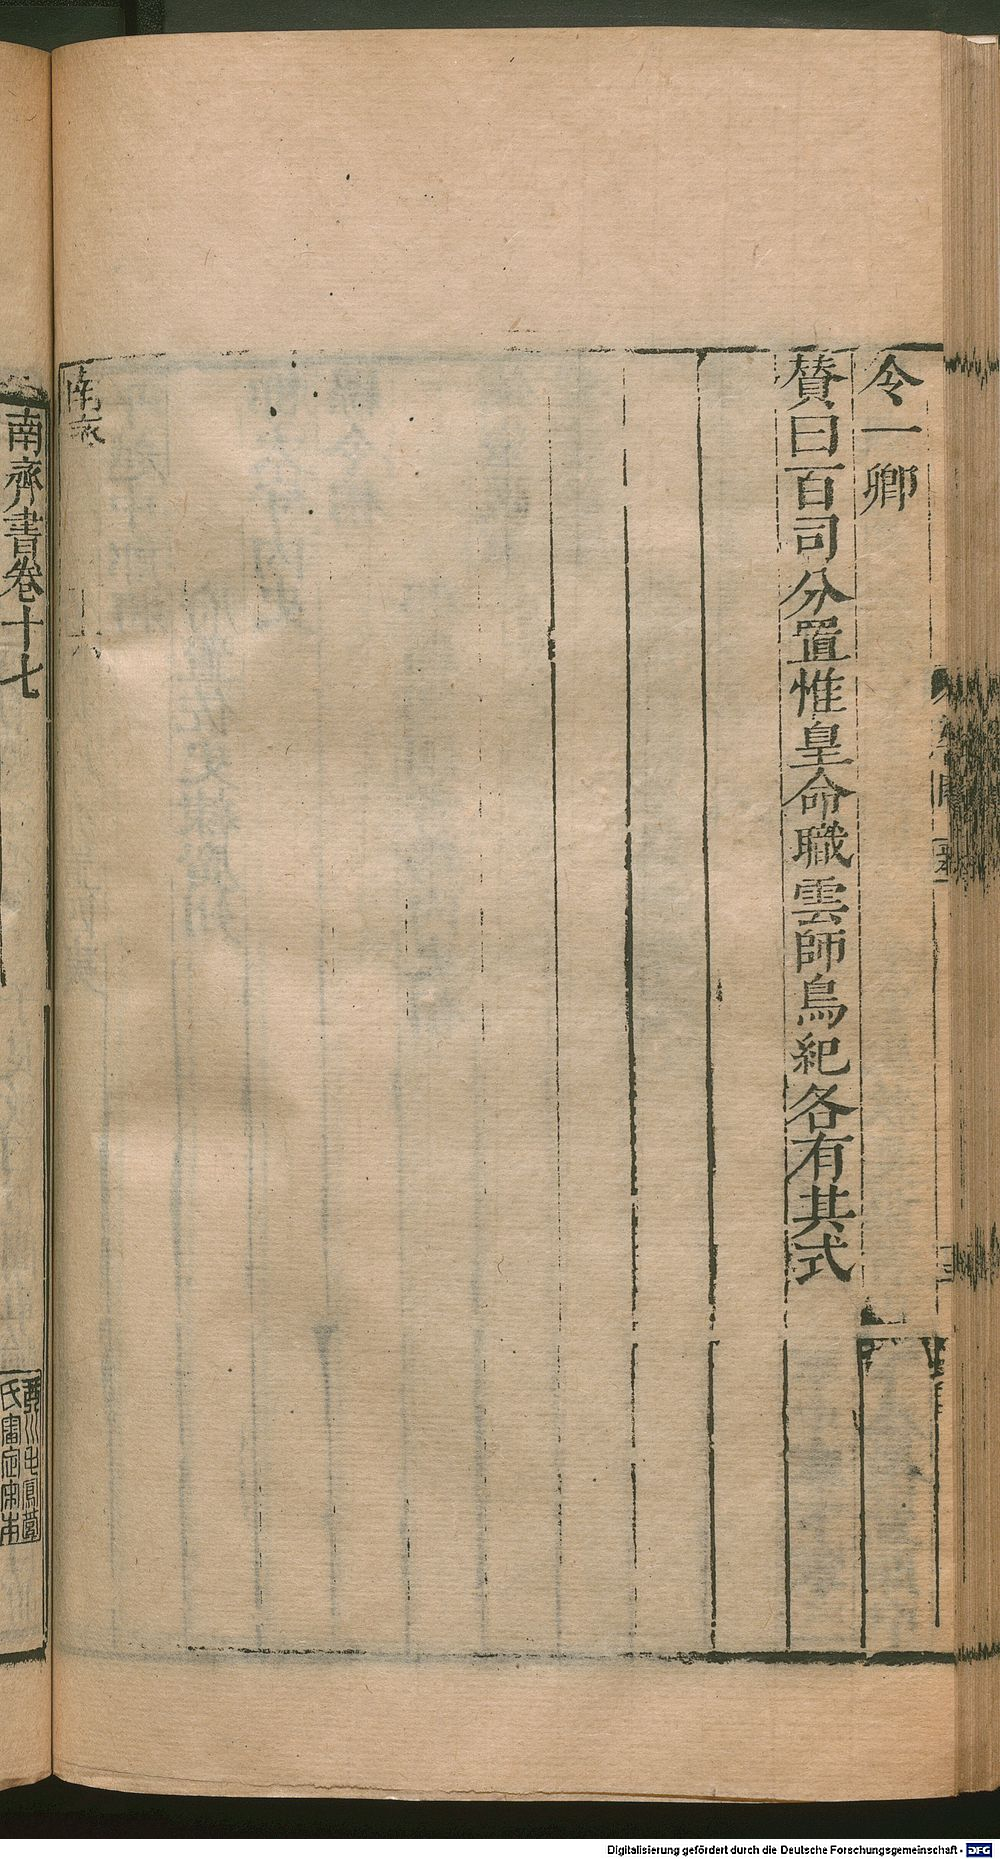 令一卿
贊曰百司分置惟皇命職雲師鳥紀各有其式
南齊
十六
南齊書卷十七
Digitalisierung gefördert durch die Deutsche Forschungsgemeinschaft - DFG